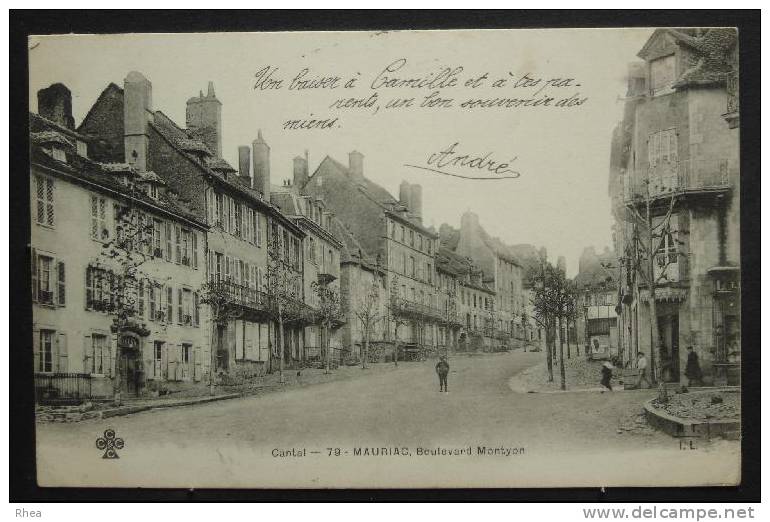 Un baiser à Camille et à tes pa-
rents, un bon souvenir des
miens.
André
Cantal — 79 - MAURIAC, Boulevard Montyon
I. L.
Rhea
© www.delcampe.net